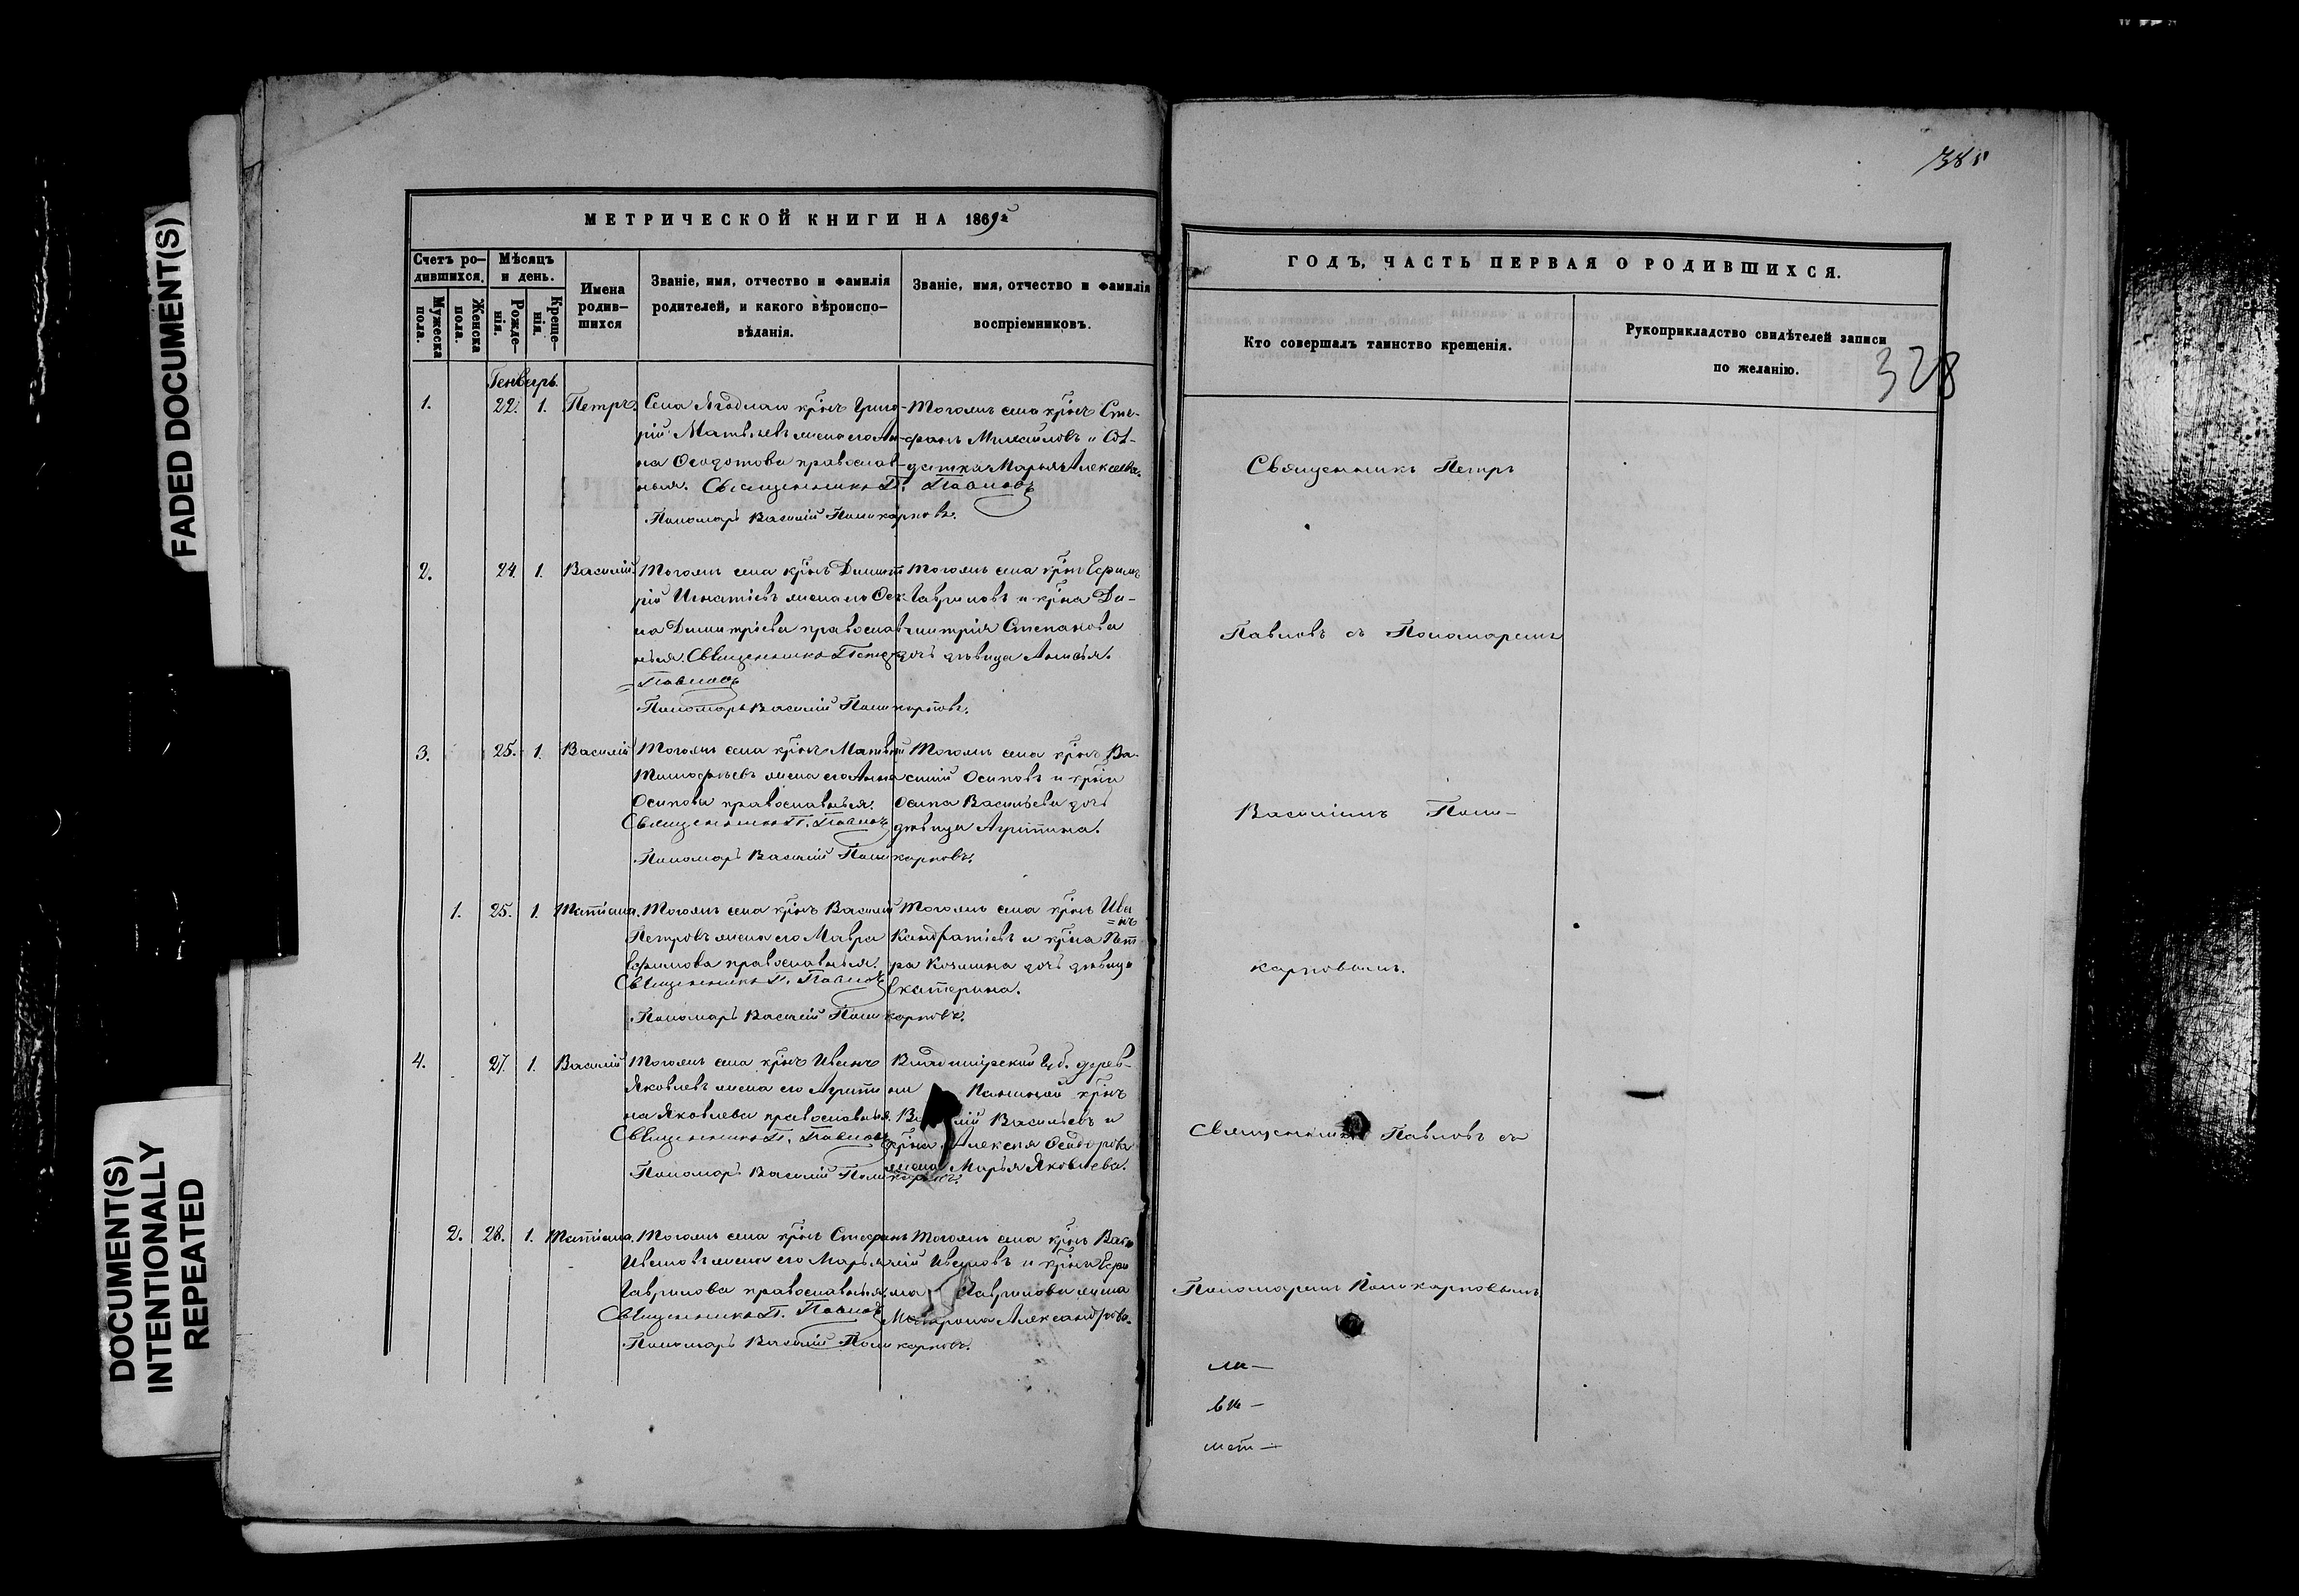 FADED DOCUMENT(S)
DOCUMENT(S)
INTENTIONALLY
REPEATED
МЕТРИЧЕСКОЙ КНИГИ НА 1869й
Счетъ ро-
дившихся.
Мужеска
пола.
Женска
пола.
Мѣсяцъ
и день.
Рожде-
нія.
Креще-
нія.
Имена
родив-
шихся
Званіе, имя, отчество и фамилія
родителей, и какого вѣроиспо-
вѣданія.
Званіе, имя, отчество и фамилія
воспріемниковъ.
Генварь.
1. 22. 1. Петръ.
Села крнъ Григо-
рій Матвѣевъ жена его Ан-
на Ѳеодотова православ-
ныя. Священникъ П. Павловъ
Пономарь Василій Поликарповъ.
Тогожъ села крнъ Сте-
фанъ Михайловъ и Сол-
датка Марья Алексѣева.
2. 24. 1. Василій.
Тогожъ села крнъ Димит
рій Игнатіевъ жена его
на Димитріева православ
ныя. Священникъ Петръ
Павловъ
Пономарь Василій Поликарповъ.
Тогожъ села крнъ Ефимъ
Гавриловъ и крна Ди-
митрія Степанова
дочь дѣвица Анисья.
3. 25. 1. Василій
Тогожъ села крнъ Матвѣй
Тимофѣевъ жена его Анна
Осипова православныя.
Священникъ П. Павловъ
Пономарь Василій Поликарповъ.
Тогожъ села крнъ Ва-
силій Осиповъ и крна
Осипа Васильева дочь
дѣвица Агрипина.
1. 25. 1. Татіана.
Тогожъ села крнъ Василій
Петровъ жена его Мавра
Ефимова православныя.
Священникъ П. Павловъ
Пономарь Василій Поликарповъ.
Тогожъ села крнъ Ива
=нъ
Кандратіевъ и крна Пет
ра Козмина дочь дѣвица
Екатерина.
4. 27. 1. Василій
Тогожъ села крнъ Иванъ
Яковлевъ жена его Агрипи
на Яковлева православныя.
Священникъ П. Павловъ
Пономарь Василій Поликарповъ.
Владимірской Губ. дерев-
ни крнъ
Васильевъ и
крна Алексѣя Ѳедорова
жена Марья Яковлева.
2. 28. 1. Татіана.
Тогожъ села крнъ Стефанъ
Ивановъ жена его Марья
Гаврилова православныя.
Священникъ П. Павловъ
Пономарь Василій Поликарповъ.
Тогожъ села крнъ Васи
лій Ивановъ и крна Ефи
ма Гаврилова жена
Матрона Александрова.
ГОДЪ, ЧАСТЬ ПЕРВАЯ О РОДИВШИХСЯ.
Кто совершалъ таинство крещенія.
Рукоприкладство свидѣтелей записи
по желанію.
328
Священникъ Петръ
Павловъ съ Пономаремъ
Василіемъ Поли-
карповымъ.
Священникъ Павловъ съ
Пономаремъ Поликарповымъ